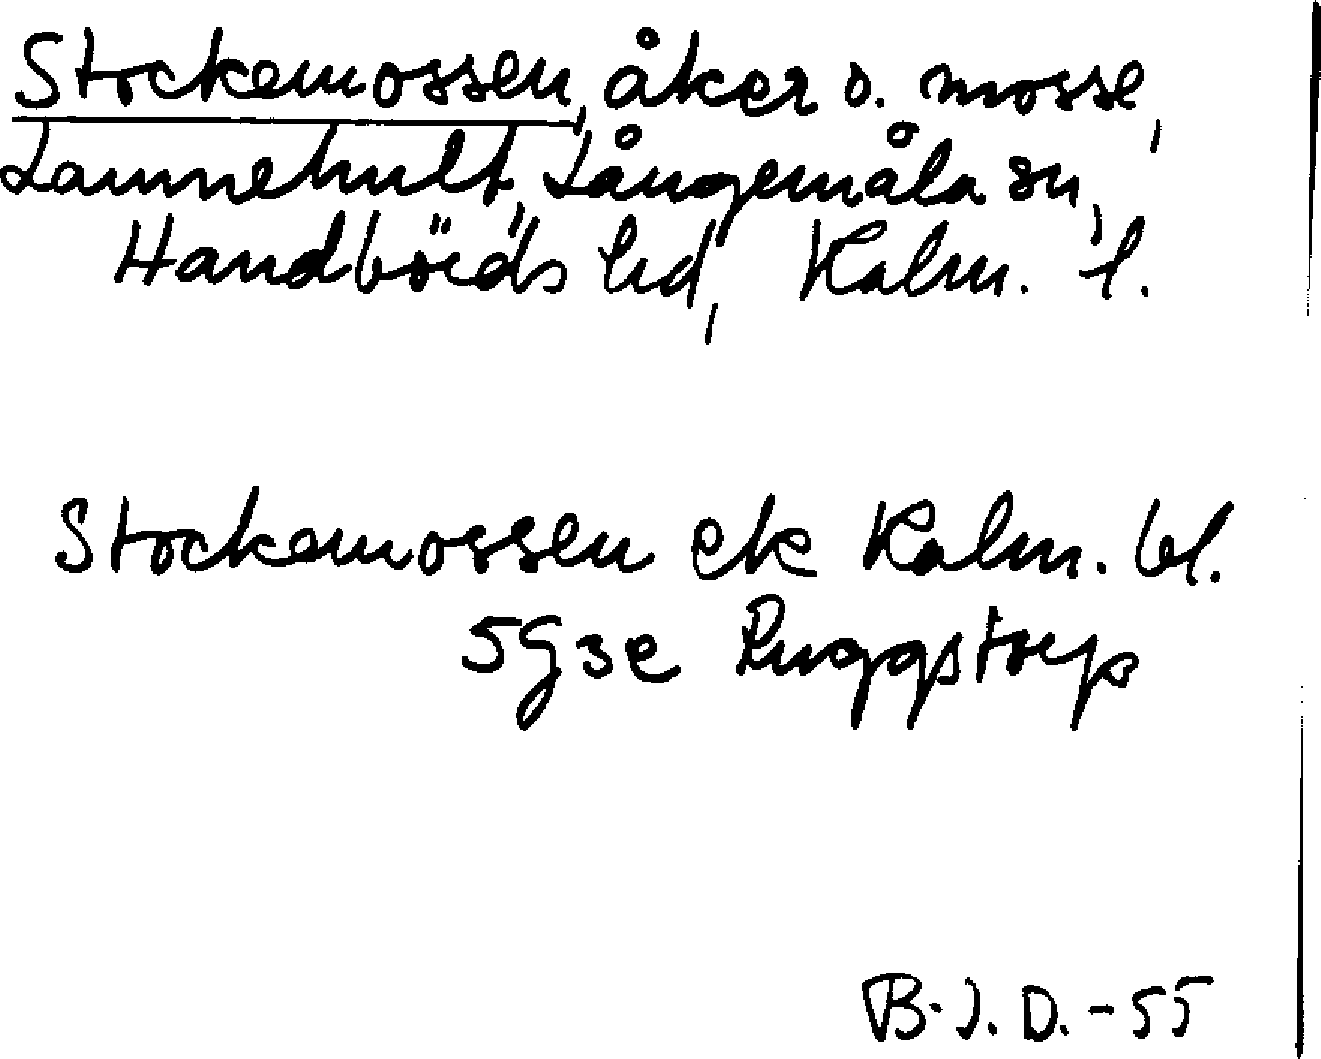 Stockemossen, åker o. mosse,
Lammehult, Långemåla sn,
Handbörds hd, Kalm. l.
Stockemossen ek Kalm. bl.
5G3e Ruggstorp
B.J.D.-55